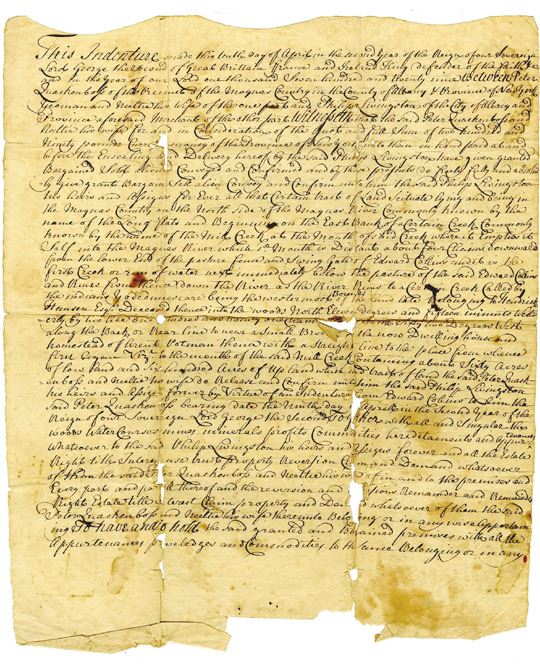 This Indenture made this tenth day of April in the second Year of the Reign of our Sovereign
Lord George the Second of Great Brittain France and Ireland King defender of the faith &c
and in the year of our Lord one thousand Seven hundred and twenty nine Between Peter
Quackenboss of the Precinct of the Maquas Country in the County of Albany & Province of New York
Yeoman and Neeltie his wife of the one part and Philip Livingston of the City of Albany and
Province aforesaid Merchant of the other part Witnesseth that the said Peter Quackenboss and
Neeltie his wife for and in Consideration of the just and full Sum of two hundred and
Ninety pounds Curr money of the Province of New York unto them in hand paid at and
before the Ensealing and Delivery hereof by the said Philip Livingston have given granted
Bargained Sold Conveyed and Confirmed and by these presents do freely fully and absolutely
give grant Bargain Sell alien Convey and Confirm unto him the said Philip Livingston
his heirs and assigns for Ever all that Certain tract of Land Situate lying and being in
the Maquas Country on the North Side of the Maquas River Commonly known by the
name of the Flatt and Beginning on the East Bank of a Certain Creek Commonly
known by the name of the Mill Creek at the Mouth of said Creek where it Emptieth
it Self into the Maquas River which Mouth is Distant about four Chains downward
from the lower End of the pasture fence and Swing Gate of Edward Collins and it is the
first Creek or of water next immediately below the pasture of the said Edward Collins
and Runs from thence down the River as the River Runs to a Certain Creek Called by
the Indians being the westermost of the land late belonging to Hendrick
Hansen Esq Deceased thence into the woods North Eleven degrees and fifteen minutes West
along the Bank or Rear line to near a Small Brook the now Dwelling house and
homestead of Arent Potman thence with a Streight line to the place from whence
first begun to the mouth of the said Mill Creek Containing about Sixty Acres
of low land and Six hundred Acres of Up land which tract of land the said Peter Quack
enboss and Neeltie his wife do Release and Confirm unto him the said Philip Livingston
his heirs and assigns forever by Virtue of an Indenture from Edward Collins to him the
said Peter Quackenboss bearing date the Ninth day of April in the Second Year of the
Reign of our Sovereign Lord George the Second together with all and Singular the
woods Water Courses mines minerals profits Commodities hereditaments and Appurtenances
Whatsoever to the said Philip Livingston his heirs and assigns forever and all the Estate
Right title Interest use trust property Reversion Claim and Demand whatsoever
of them the said Peter Quackenboss and Neeltie his wife of in and to the premises and
Every part and parcel thereof and the reversion and Reversions Remainder and Remainders
Right Estate title Interest Claim property and Demand whatsoever of them the said
Peter Quackenboss and Neeltie his wife thereunto Belonging or in any wise appertain
ing To have and to hold the said granted and Bargained premises with all the
appurtenances priveledges and Commodities to the same Belonging or in any